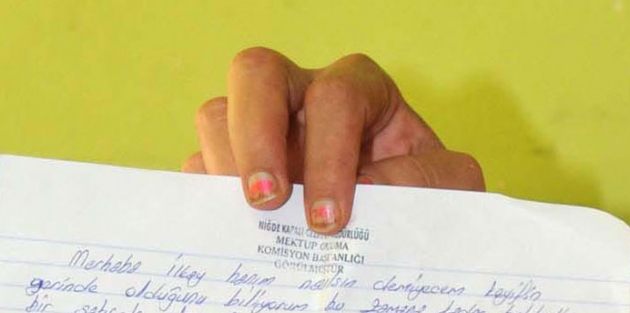 NİĞDE KAPALI CEZAEVİ MÜDÜRLÜĞÜ
MEKTUP OKUMA
KOMİSYON BAŞKANLIĞI
GÖRÜLMÜŞTÜR
Merhaba İlkay hanım nasılsın demiyecem keyifin
yerinde olduğunu biliyorum bu zamana kadar
bir